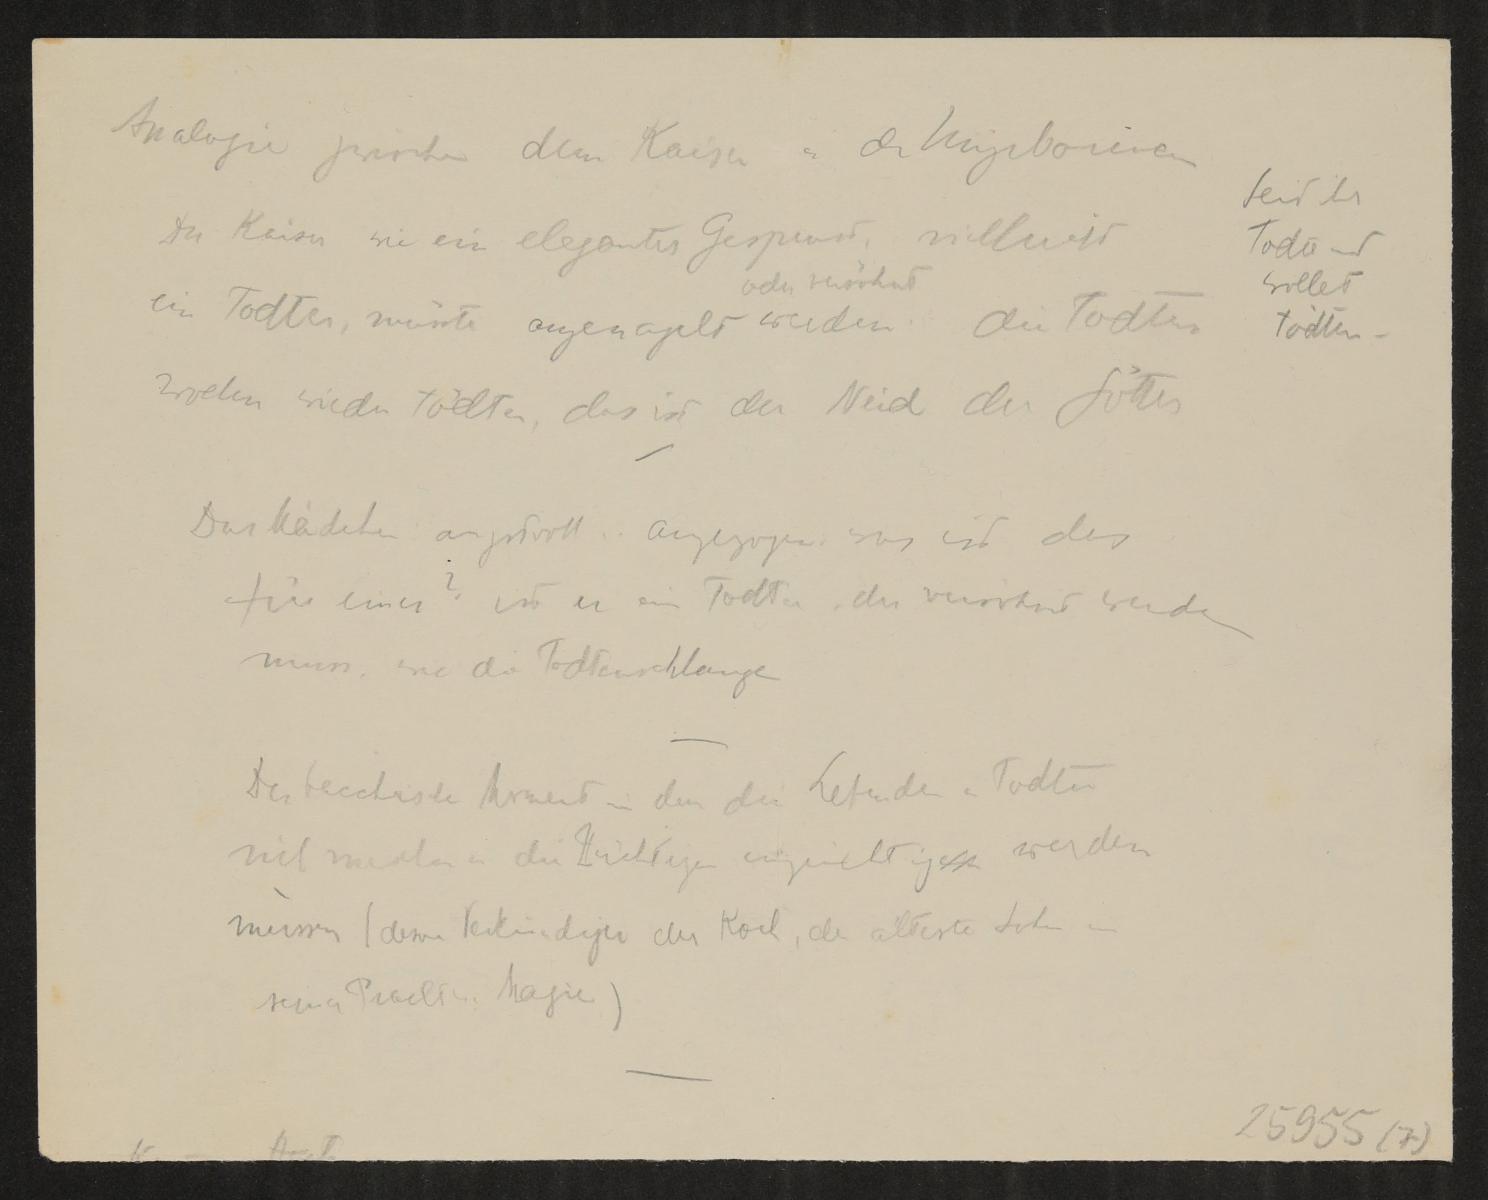 Analogie zwischen dem Kaiser u der Ungeborenen
Der Kaiser wie ein elegantes Gespenst, vielleicht
ein Todter, müsste angenagelt oder versöhnt werden. die Todten
wollen wieder tödten, das ist der Neid der Götter
Seid ihr
Todte und
wollet
tödten –
—
Das Mädchen angstvoll .. angezogen. was ist das
für einer? ist er ein Todter, der versöhnt werden
muss, wie die Todtenschlange
—
Der Moment in dem die Lebenden u Todten
die werden
müssen (dessen Verkündiger der Koch, der älteste Sohn in
seiner Pracht u. Magie)
—
25955 (7)